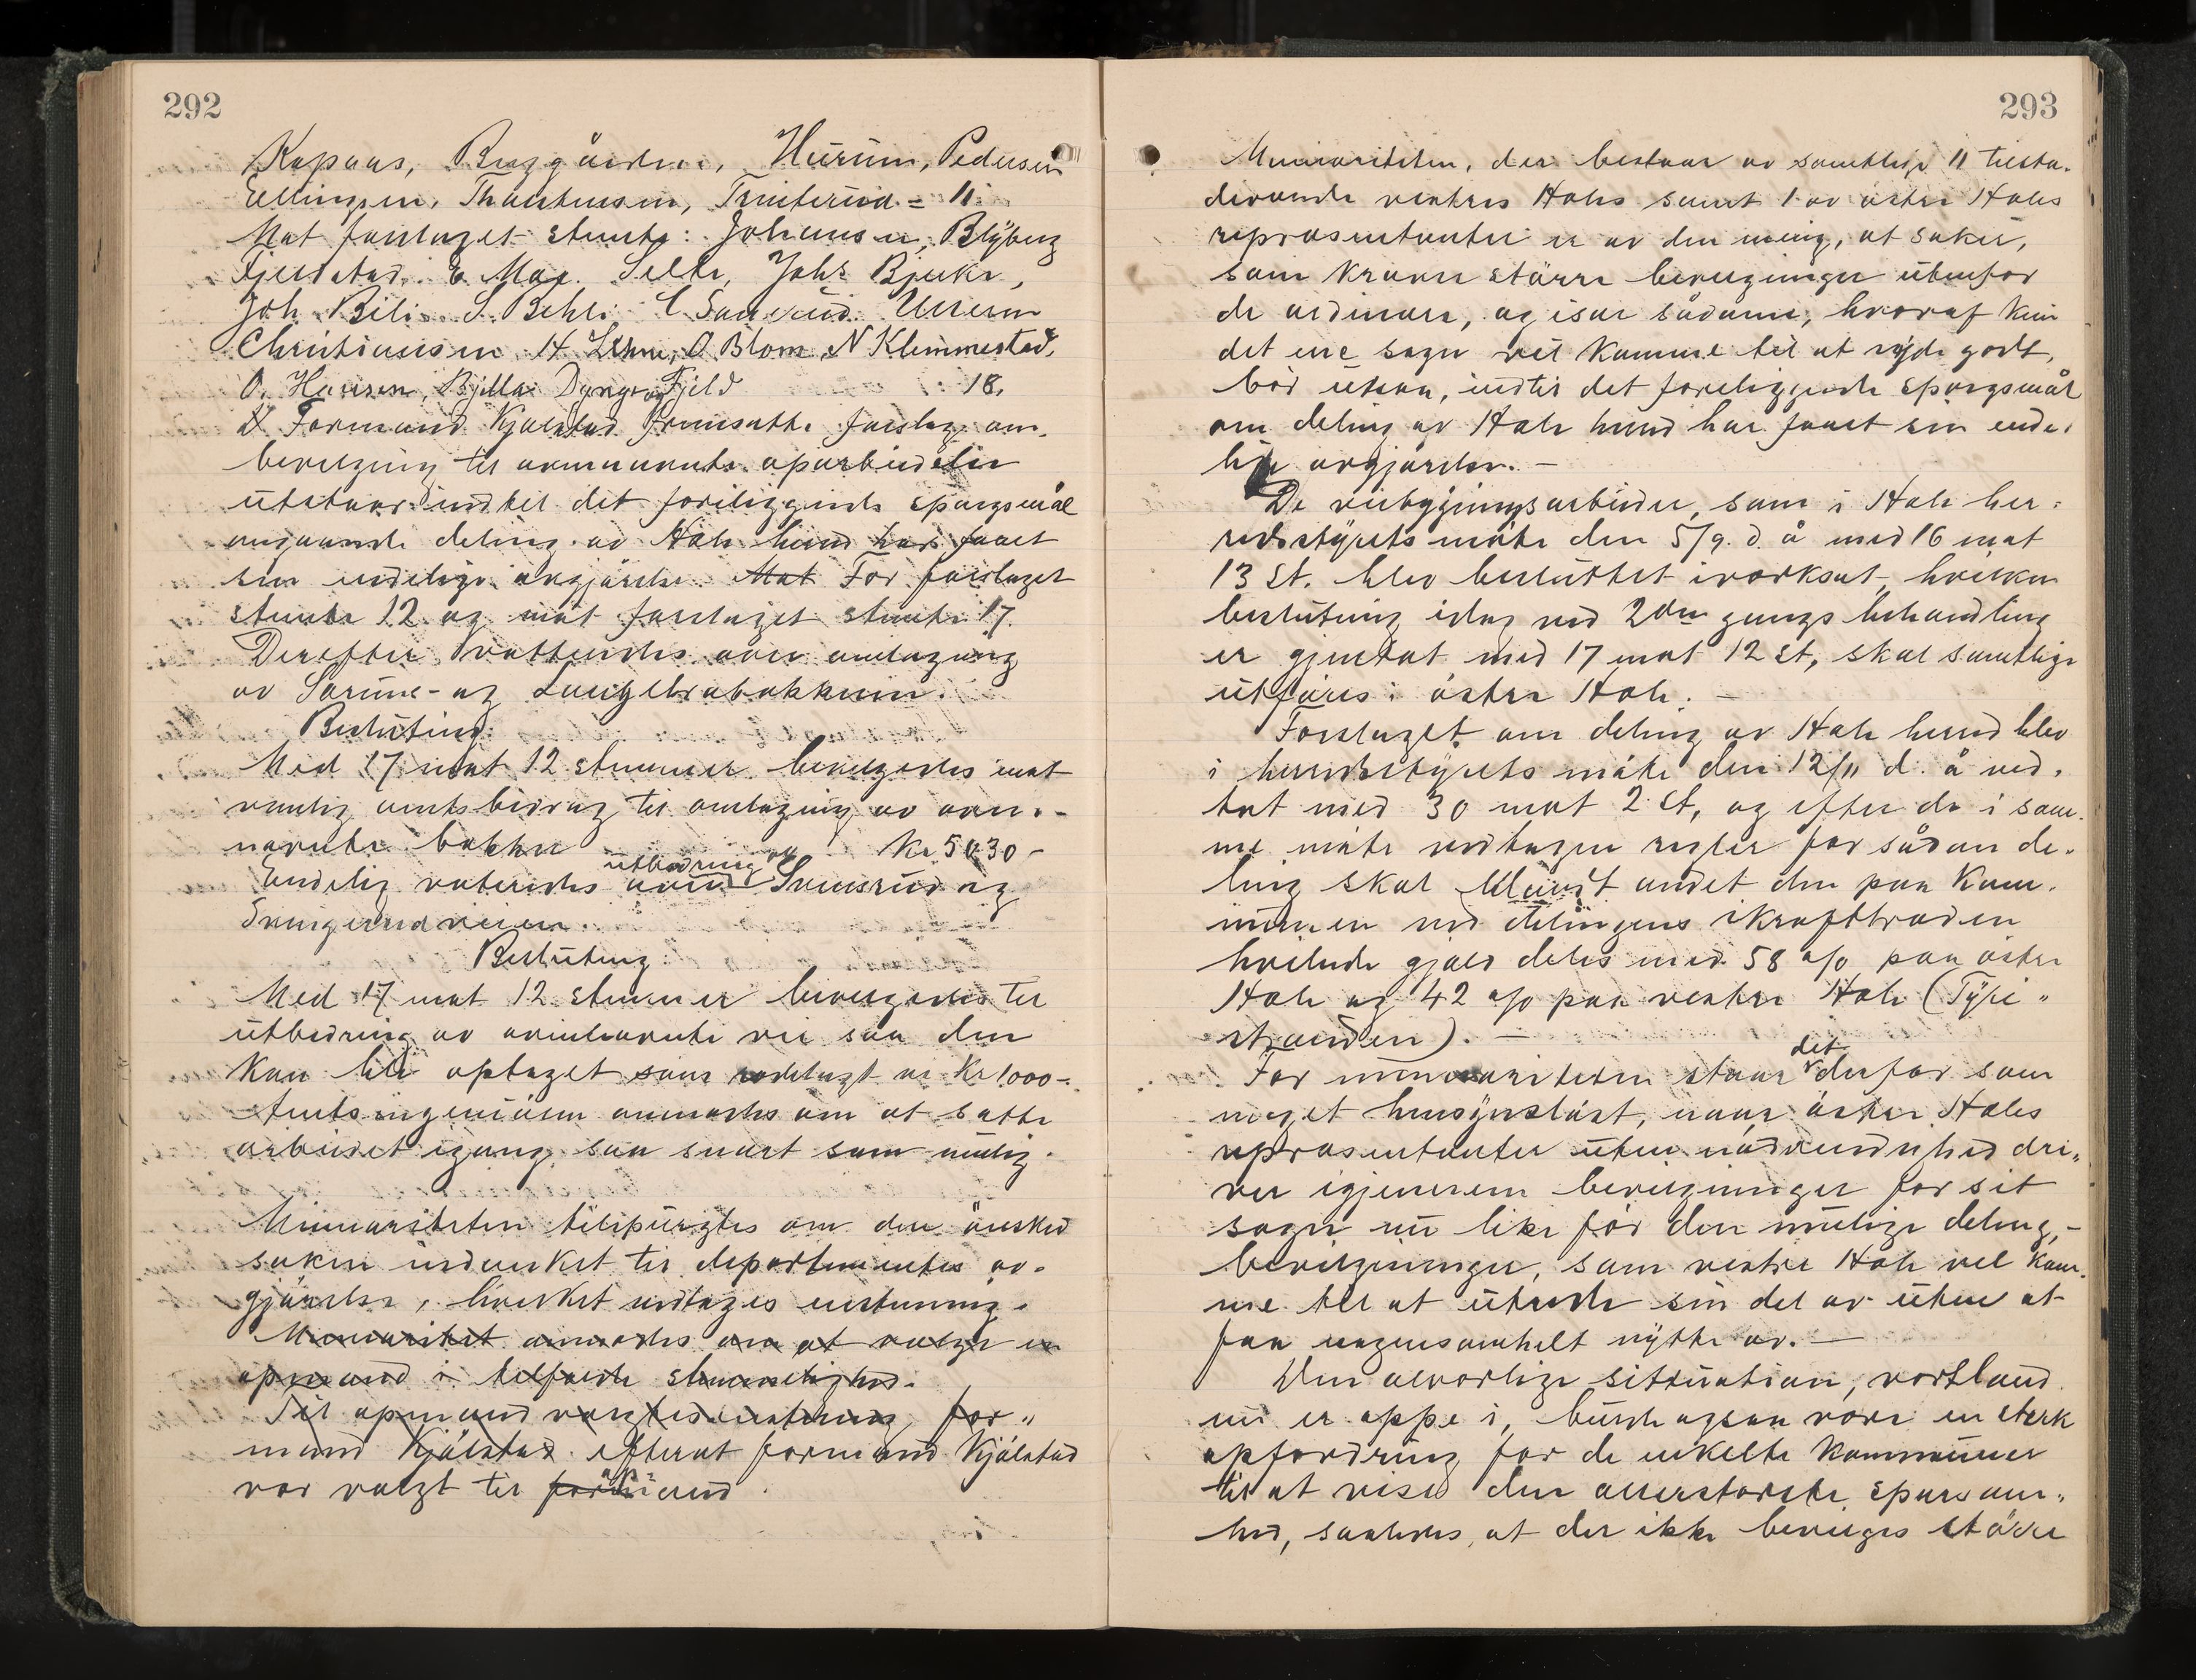 292
Kopaas, Hurum, Pedersen
Ellingsen, Thorstensen, = 11.
Mot forslaget stemte: Johansen, Blyberg
Fjeldstad. Selte, Johs Bjerke,
Joh. Bili S. Behli
Christiansen H Lehne, O Blom N Klemmestad,
O. Hansen, Bjella Dyngo og Fjeld 18.
Formand Kjølstad fremsatte forslag om
bevilgning til veiarbeider
utstaar indtil det foreliggende spørgsmål
angaaende deling av Hole herred har faaet
sin endelige avgjørelse. Mot For forslaget
stemte 12 og mot forslaget stemte 17.
Derefter votertes over omlægning
av Sørum- og bakken.
Beslutning:
Med 17 mot 12 stemmer bevilgedes mot
vanlig amtsbidrag til omlægning av oven-
nævnte bakker Kr 5030-
Endelig votertes over utbedring av Svensrud og
veien.
Beslutning:
Med 17 mot 12 stemmer bevilgedes til
utbedring av ovennævnte vei saa den
kan bli optaget som rodelagt vei Kr 1000-.
Amtsingeniøren anmodes om at sætte
arbeidet igang saa snart som mulig.
Minoriteten tilspurgtes om den ønsket
saken indanket til departementets av-
gjørelse, hvilket
Minoritet anmodes om at vælge en
opmand i tilfælde
Til opmand valgtes for-
mand Kjølstad efterat formand Kjølstad
var valgt til formand
293
Minoriteten, der bestaar av samtlige 11 tilste-
deværende vestre Holes samt 1 av østre Holes
repræsentanter er av den mening, at saker,
som kræver større bevilgninger utenfor
de ordinære, og især sådanne, hvoraf kun
det ene sogn vil komme til at nyde godt,
bør utstaa, indtil det foreliggende spørgsmål
om deling av Hole herred har faaet sin ende-
lige avgjørelse. —
De veibygningsarbeider, som i Hole her-
redsstyrets møte den 5/9. d. å med 16 mot
13 St. blev besluttet iverksat, hvilken
beslutning idag ved 2den gangs behandling
er gjentat med 17 mot 12 st, skal samtlige
utføres i østre Hole. —
Forslaget om deling av Hole herred blev
i herredsstyrets møte den 12/11 d. å ved-
tat med 30 mot 2 St, og efter de i sam-
me møte vedtagne regler for sådan de-
ling skal blandt andet den paa kom-
munen ved delingens ikrafttræden
hvilende gjæld deles med 58 o/o paa østre
Hole og 42 o/o paa vestre Hole (Tyri-
stranden). —
For minoriteten staar det derfor som
meget hensynsløst, naar østre Holes
repræsentanter uten nødvendighed dri-
ver igjennem bevilgninger for sit
sogn nu like før den mulige deling, -
bevilgninger, som vestre Hole vil kom-
me til at utrede sin del av uten at
faa nogensomhelst nytte av. —
Den alvorlige sittuation, vort land
nu er oppe i, burde ogsaa være en sterk
opfordring for de enkelte kommuner
til at vise den allerstørste sparsom-
hed, saaledes, at der ikke bevilges større